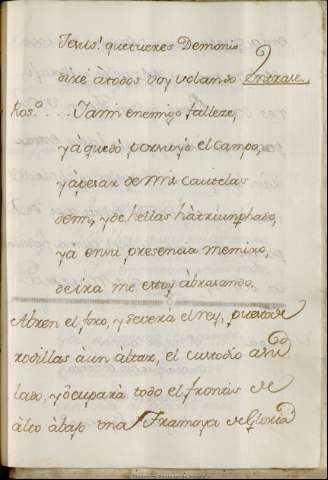 Jesus! que tu eres Demonio
diré à todos voy volando Entrase.
Ros.º .... Ia mi enemigo falleze,
ya quedò por suyo el campo,
ya à pesar de mis cautelas
de mi, y de hellas hà triunphado,
yà en su presencia me miro,
de ira me estoy àbrasando.
Abren el foro, y se verà el rey, puesto de
rodillas à un altar, el custodio à su
lado, y òcuparà todo el frontis de
àlto àbajo una Tramoya de Gloria